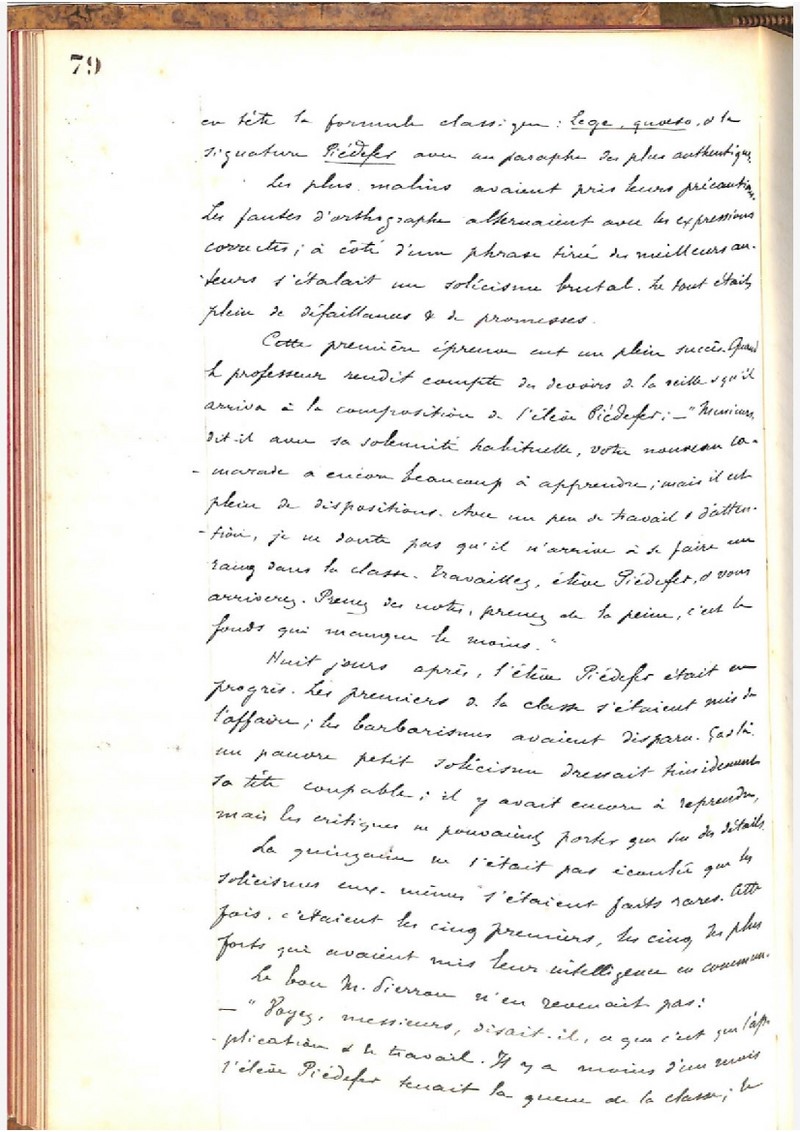 79
en tête la formule classique : Lege, quæso, & la
signature Piédefer avec un paraphe des plus authentiques.
Les plus malins avaient pris leurs précautions.
Les fautes d'orthographe alternaient avec les expressions
correctes ; à côté d'une phrase tirée des meilleurs au-
teurs s'étalait un solécisme brutal. Le tout était
plein de défaillances & de promesses.
Cette première épreuve eut un plein succès. Quand
le professeur rendit compte des devoirs de la veille & qu'il
arriva à la composition de l'élève Piédefer : — "Messieurs,
dit-il avec sa solennité habituelle, votre nouveau ca-
marade a encore beaucoup à apprendre ; mais il est
plein de dispositions. Avec un peu de travail & d'atten-
tion, je ne doute pas qu'il n'arrive à se faire un
rang dans la classe. Travaillez, élève Piédefer, & vous
arriverez. Prenez des notes, prenez de la peine, c'est le
fonds qui manque le moins."
Huit jours après, l'élève Piédefer était en
progrès. Les premiers de la classe s'étaient mis de
l'affaire ; les barbarismes avaient disparu. Çà & là
un pauvre petit solécisme dressait timidement
sa tête coupable ; il y avait encore à reprendre,
mais les critiques ne pouvaient porter que sur des détails.
La quinzaine ne s'était pas écoulée que les
solécismes eux-mêmes s'étaient faits rares. Cette
fois, c'étaient les cinq premiers, les cinq des plus
forts qui avaient mis leur intelligence en commun.
Le bon M. Pierron n'en revenait pas :
— "Voyez, messieurs, disait-il, ce que c'est que l'ap-
plication & le travail. Il y a moins d'un mois
l'élève Piédefer tenait la queue de la classe ; le